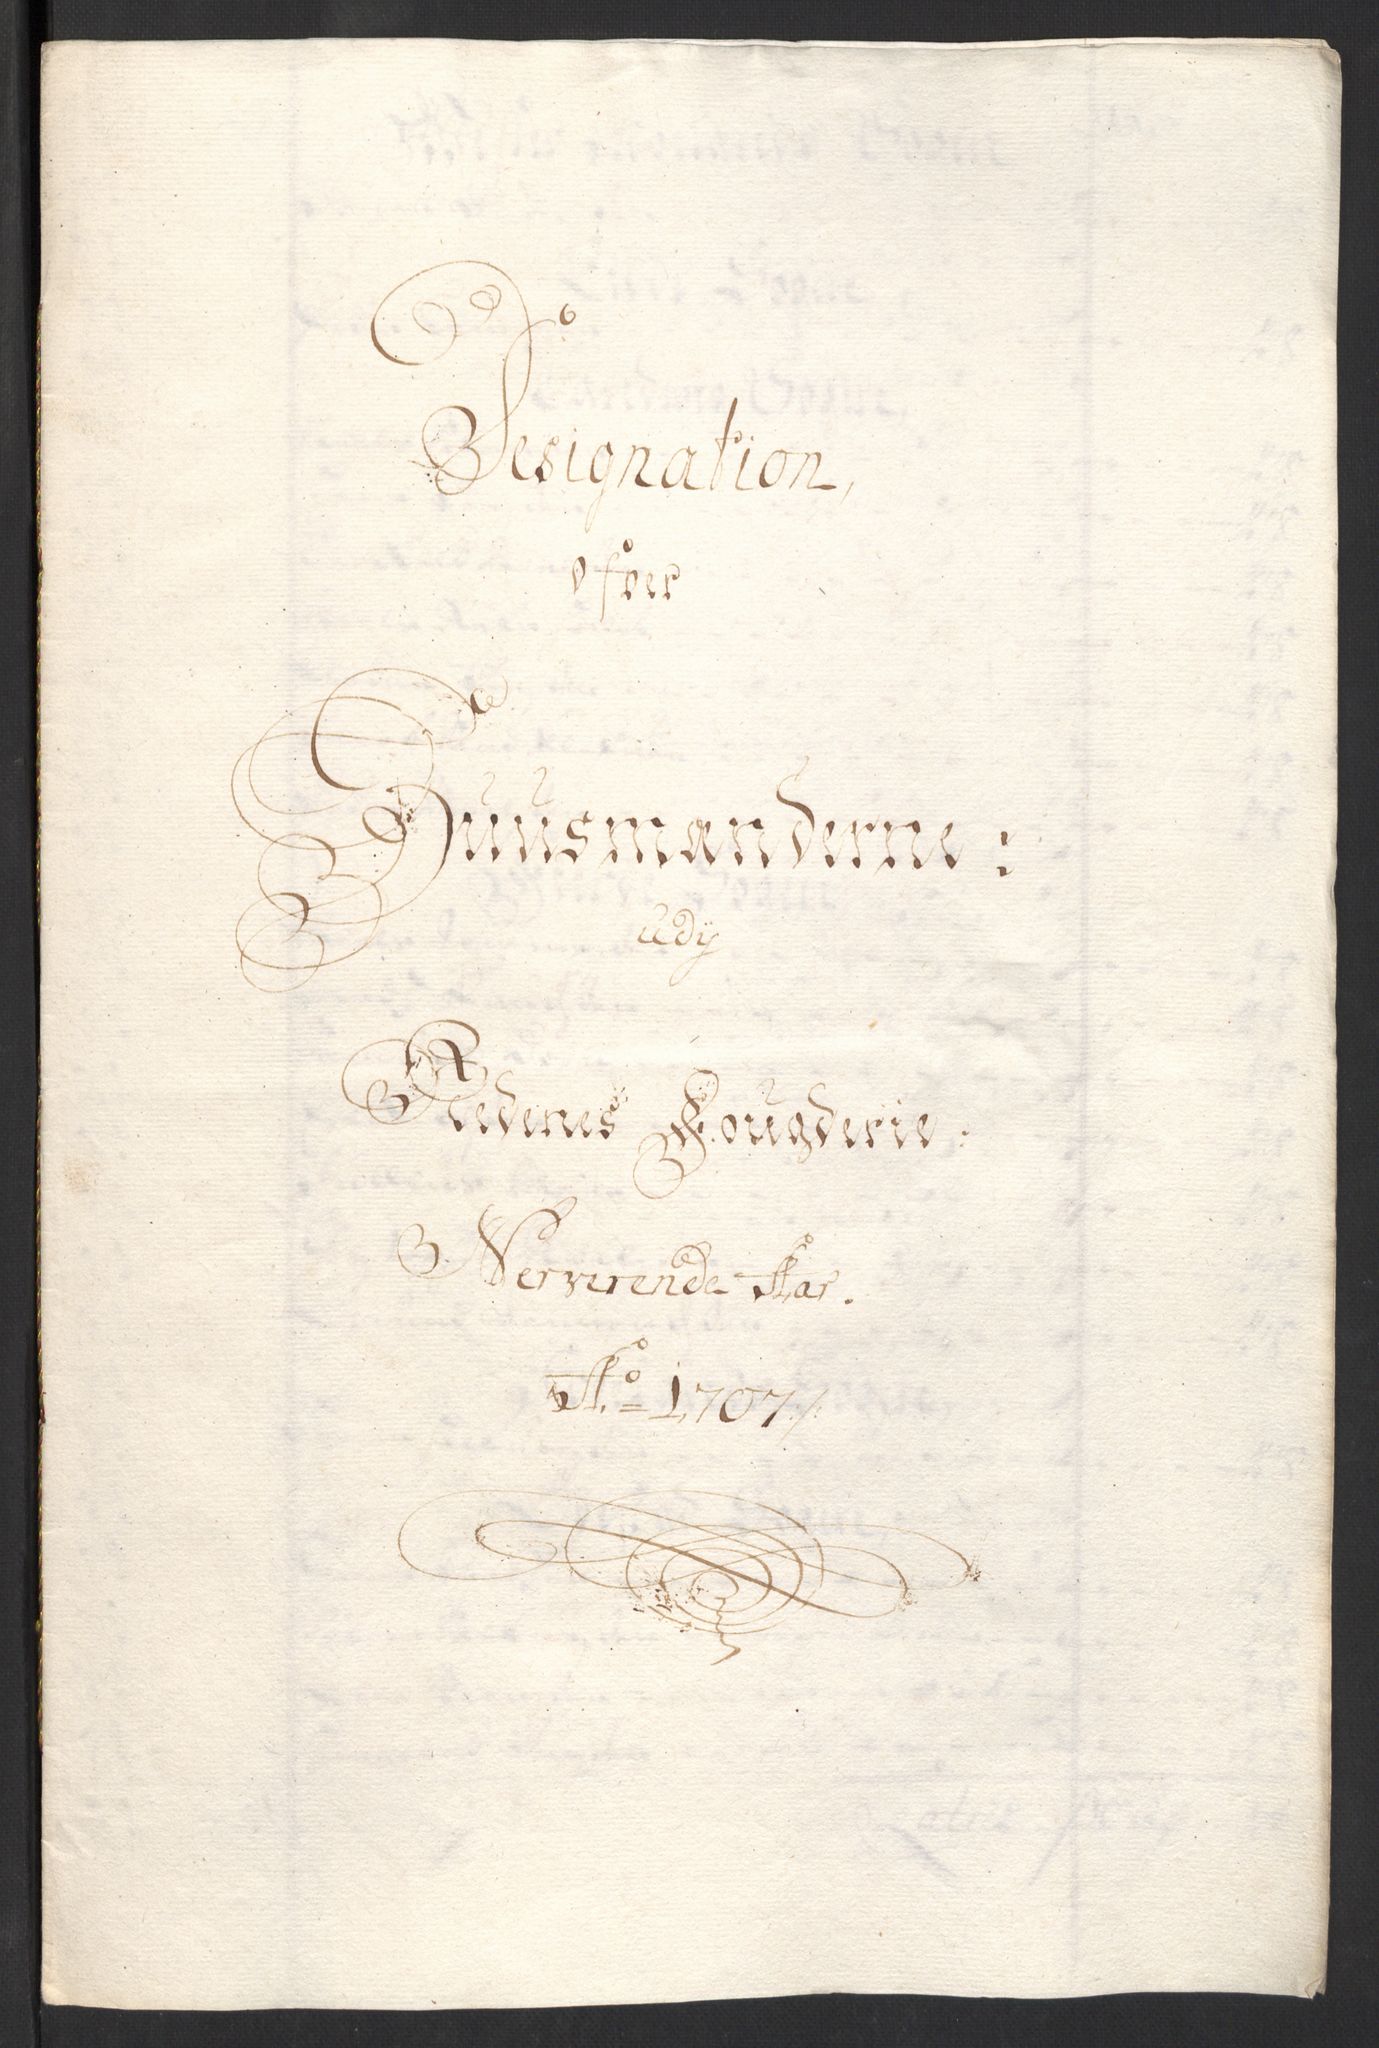 Designation,
ofver
Huusmænderne:
udy
Nedenes Fougderie:
Nerverende Aar.
Ao = 1707/: